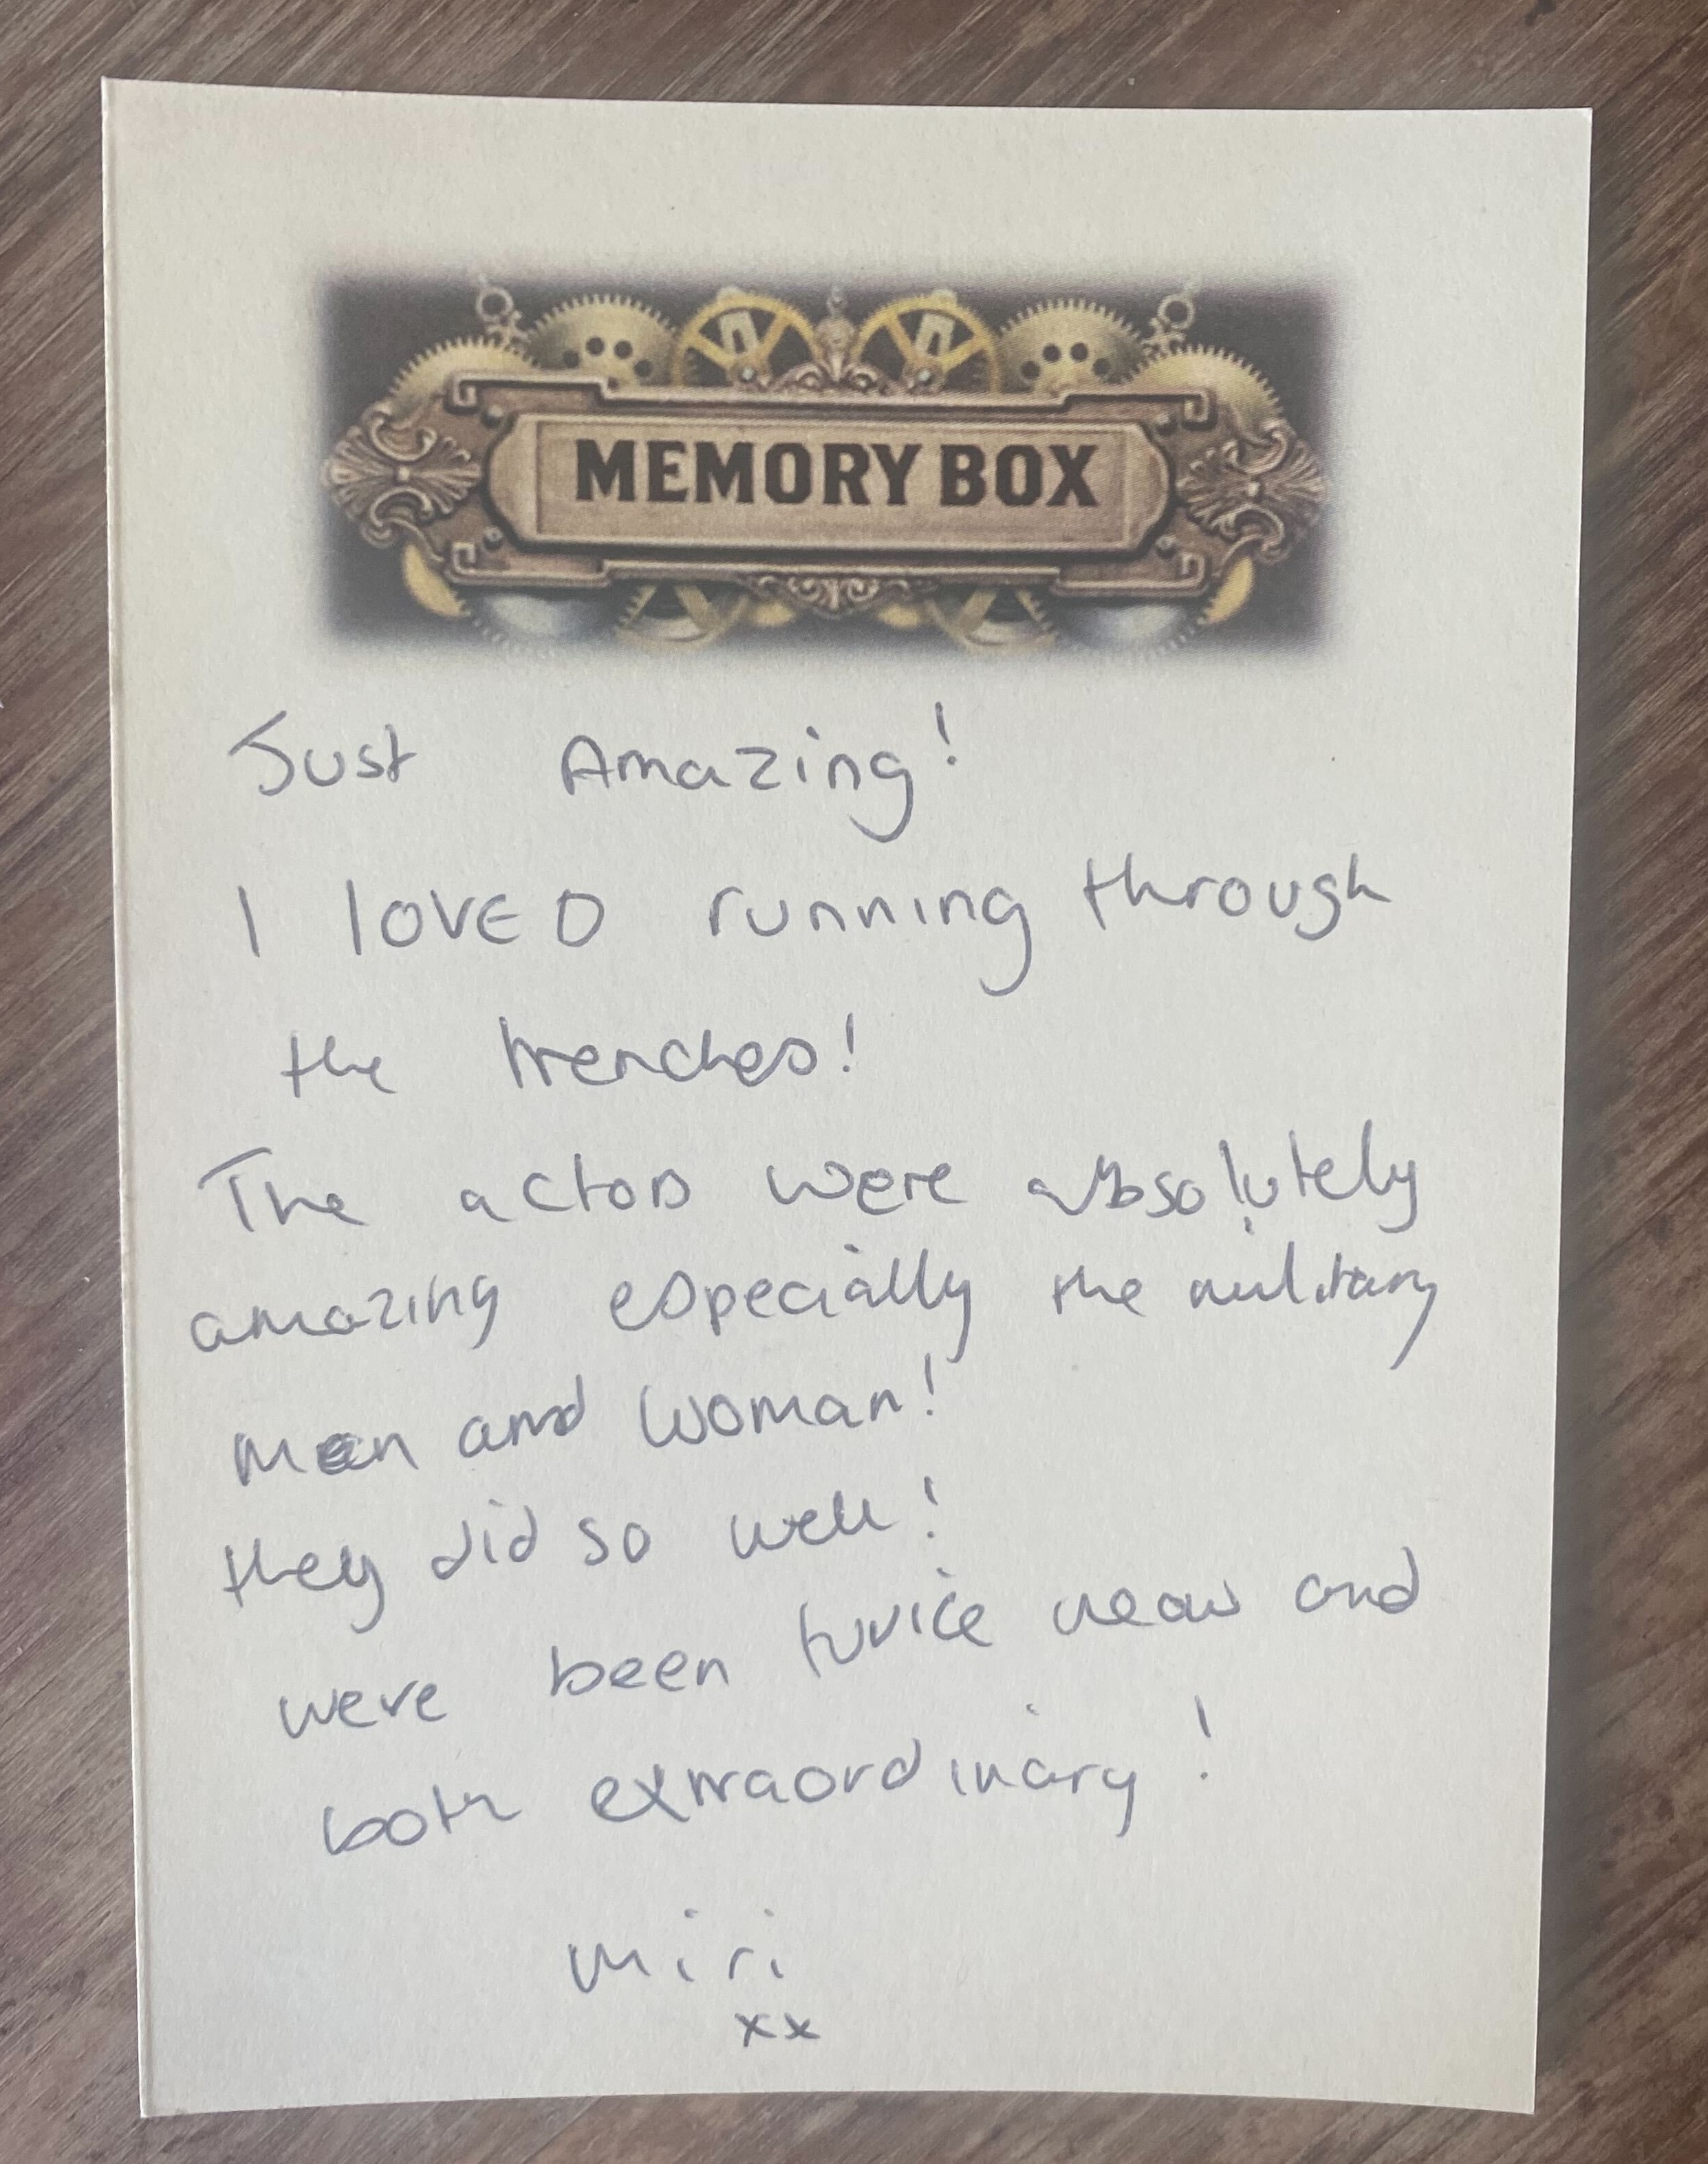 MEMORY BOX
Just Amazing!
I lovED running through
the trenches!
The actors were absolutely
amazing especially the military
men and woman!
they did so well!
were been twice now and
both extraordinary!
miri
xx